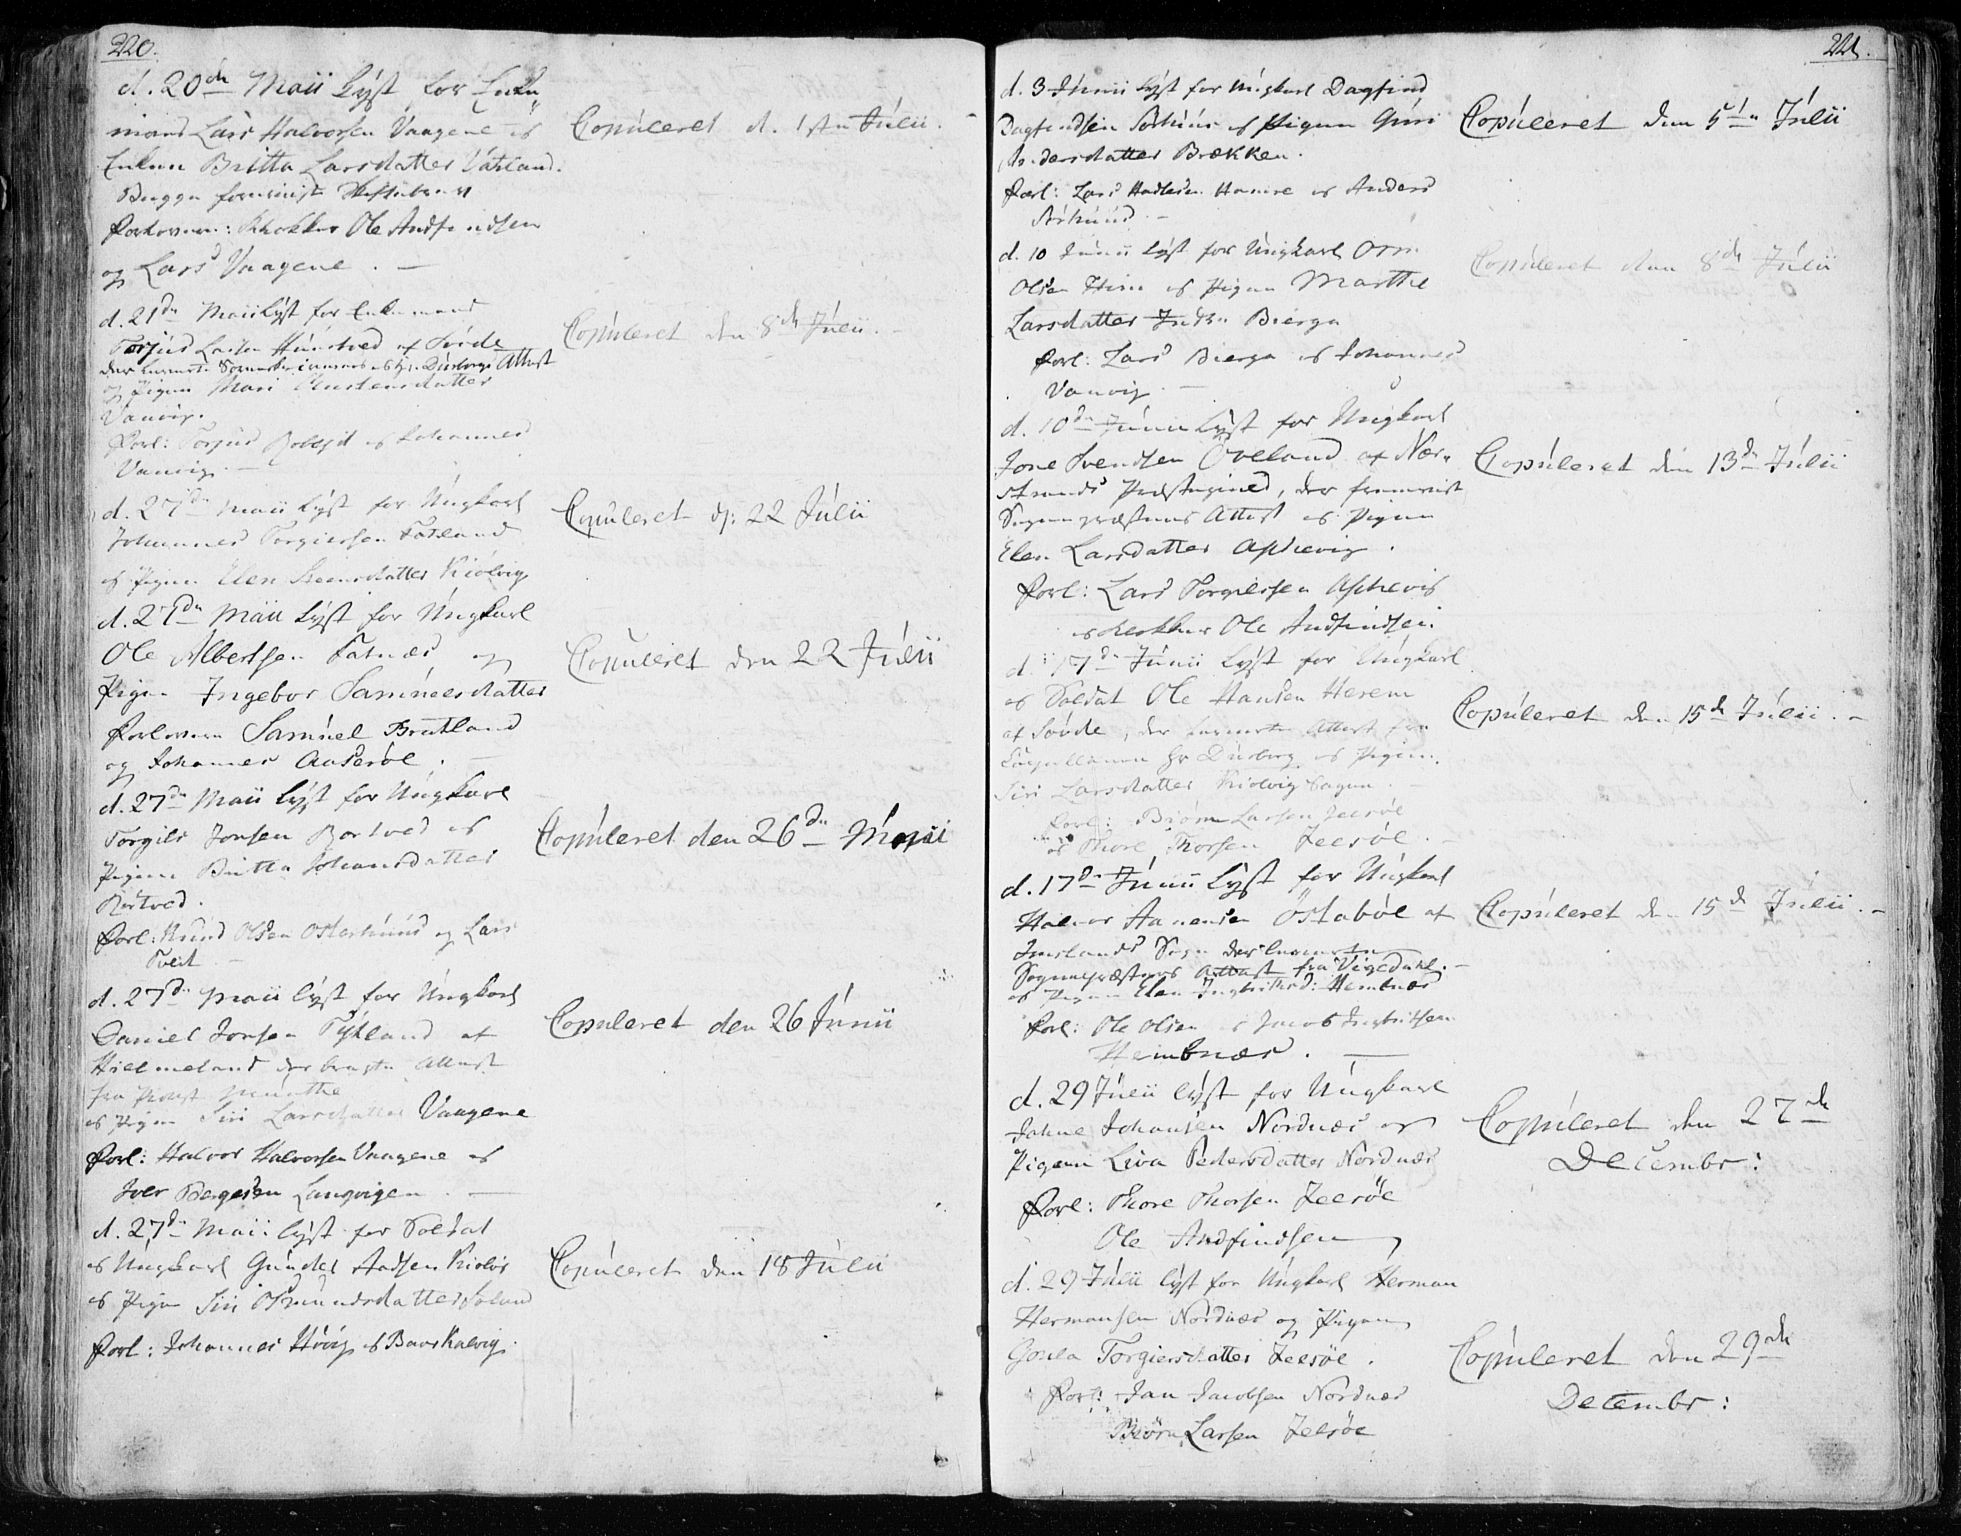 220.
d. 20de Maii lyst for Enke„
mand Lars Halvorsen Vaagene og
Enken Britta Larsdatter Vatland.
Begge foreviist
Forlovere: Klokker Ole Andfindsen
og Lars Vaagene. —
Copúleret d. 1ste Júlii. -
d. 21de Maii lyst for Enkemand
Torjus Larsen Húústved af Søvde
der leverte Hr. Dúeborgs Attest
og Pigen Mari Austensdatter
Vanvig.
Forl: Torjus og Johannes
Vanvig. —
Copúleret den 8de Júlii. -
d. 27de Maii lyst for Úngkarl
Johannes Torgiersen Fatland
og Pigen Elen Kiølvig
Copúleret d: 22 Júlii
d. 27de Maii lyst for Úngkarl
Ole Albertsen Fatnæs og
Pigen Ingebor Samúelsdatter
Forlovere Samúel Brútland
og Johannes Aaserøe. —
Copúleret den 22 Júlii
d. 27de Maii lyst for Úngkarl
Torgils Jonsen Rortved og
Pigen Britta Johansdatter
Rortved.
Forl: Knúd Olsen Østerhúús og Lars
Tveit —
Copúleret den 26de
d. 27de Maii lyst for Úngkarl
Daniel Jonsen Tÿtland af
Hielmeland der bragte Attest
fra Provst Múnthe
og Pigen Siri Larsdatter Vaagene
Forl: Halvor Halvorsen Vaagene og
Iver Børgesen Langvigen. —
Copúleret den 26 Júnii
d. 27de Maii lyst for Soldat
og Úngkarl Gúnder Aadsen Kiolvig
og Pigen Siri Osmúndsdatter
Forl: Johannes og Baar Kalvig.
Copúleret den 18 Júlii
221.
d. 3 Júnii lyst for Úngkarl Dagfind
Dagfindsen og Pigen Gúri
Andersdatter Brækken.
Forl: Lars Hamre og Anders
Copúleret den 5te Júlii
d. 10 Júnii lyst for Úngkarl Orm
Olsen og Pigen Marthe
Larsdatter Indre Bierga
Forl: Lars Bierga og Johannes
Vanvig. —
Copúleret den 8de Júlii
d. 10de Júnii lyst for Úngkarl
Jone Svendsen Öveland af Nær„
strands Præstegield, der foreviist
Sognepræstens Attest og Pigen
Elen Larsdatter Aschevig.
Forl: Lars Torgiersen Aschevig
og Klokker Ole Andfindsen.
Copúleret den 13de Júlii
d. 17de Júnii lyst for Úngkarl
og Soldat Ole Hansen Herem
af Søvde, der leverte Attest fra
Capellanen Hr. Dúeborg og Pigen
Siri Larsdatter Kiolvig
Forl: Biørn Larsen Jeesøe
og Thore Thorsen Jeesøe. —
Copúleret den 15de Júlii. -
d. 17de Júnii lyst for Úngkarl
Halvor Aanensen Östabøe af
Imslands Sogn der leverte
Sognepræstens Attest fra Vigedahl. —
og Pigen Elen Ingbritsd: Heimnæs
Forl: Ole Olsen og Jacob Ingbritsen
Heimbnæs. —
Copúleret den 15de Júlii. -
d. 29 Júlii lyst for Úngkarl
Johne Johansen Nordnæs og
Pigen Liva Pedersdatter Nordnæs
Forl: Thore Thorsen Jeesøe
Ole Andfindsen
Copúleret den 27de
Decembr:
d. 29 Júlii lyst for Úngkarl Herman
Hermansen Nordnæs og Pigen
Torgiersdatter Jeesøe.
Forl: Jan Jacobsen Nordnæs
Biørn Larsen Jeesøe
Copúleret den 29de
Decembr: